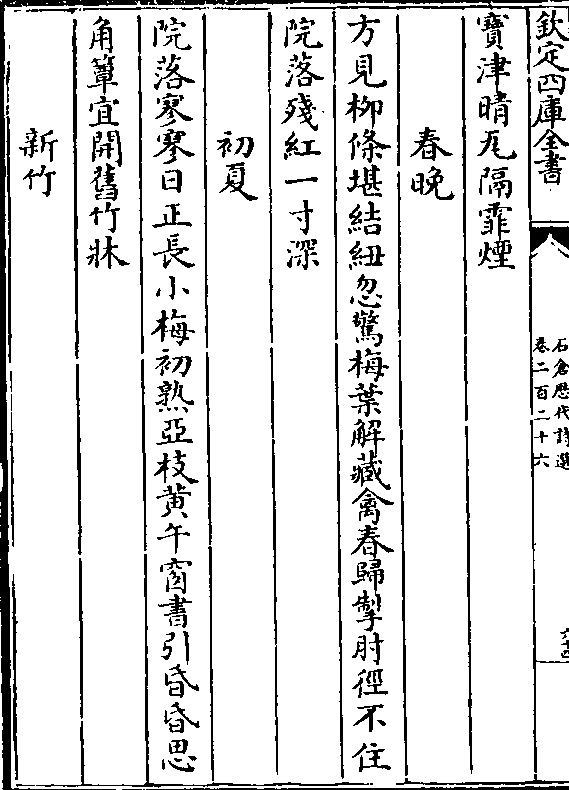 欽定四庫全書
石倉歷代詩選
卷二百二十六
寶津晴瓦隔霏煙
春晚
方見柳條堪結紐忽驚梅葉解藏禽春歸掣肘徑不住
院落殘紅一寸深
初夏
院落寒寒日正長小梅初熟亞枝黄午窗書引昏昏思
角簟宜開舊竹牀
新竹